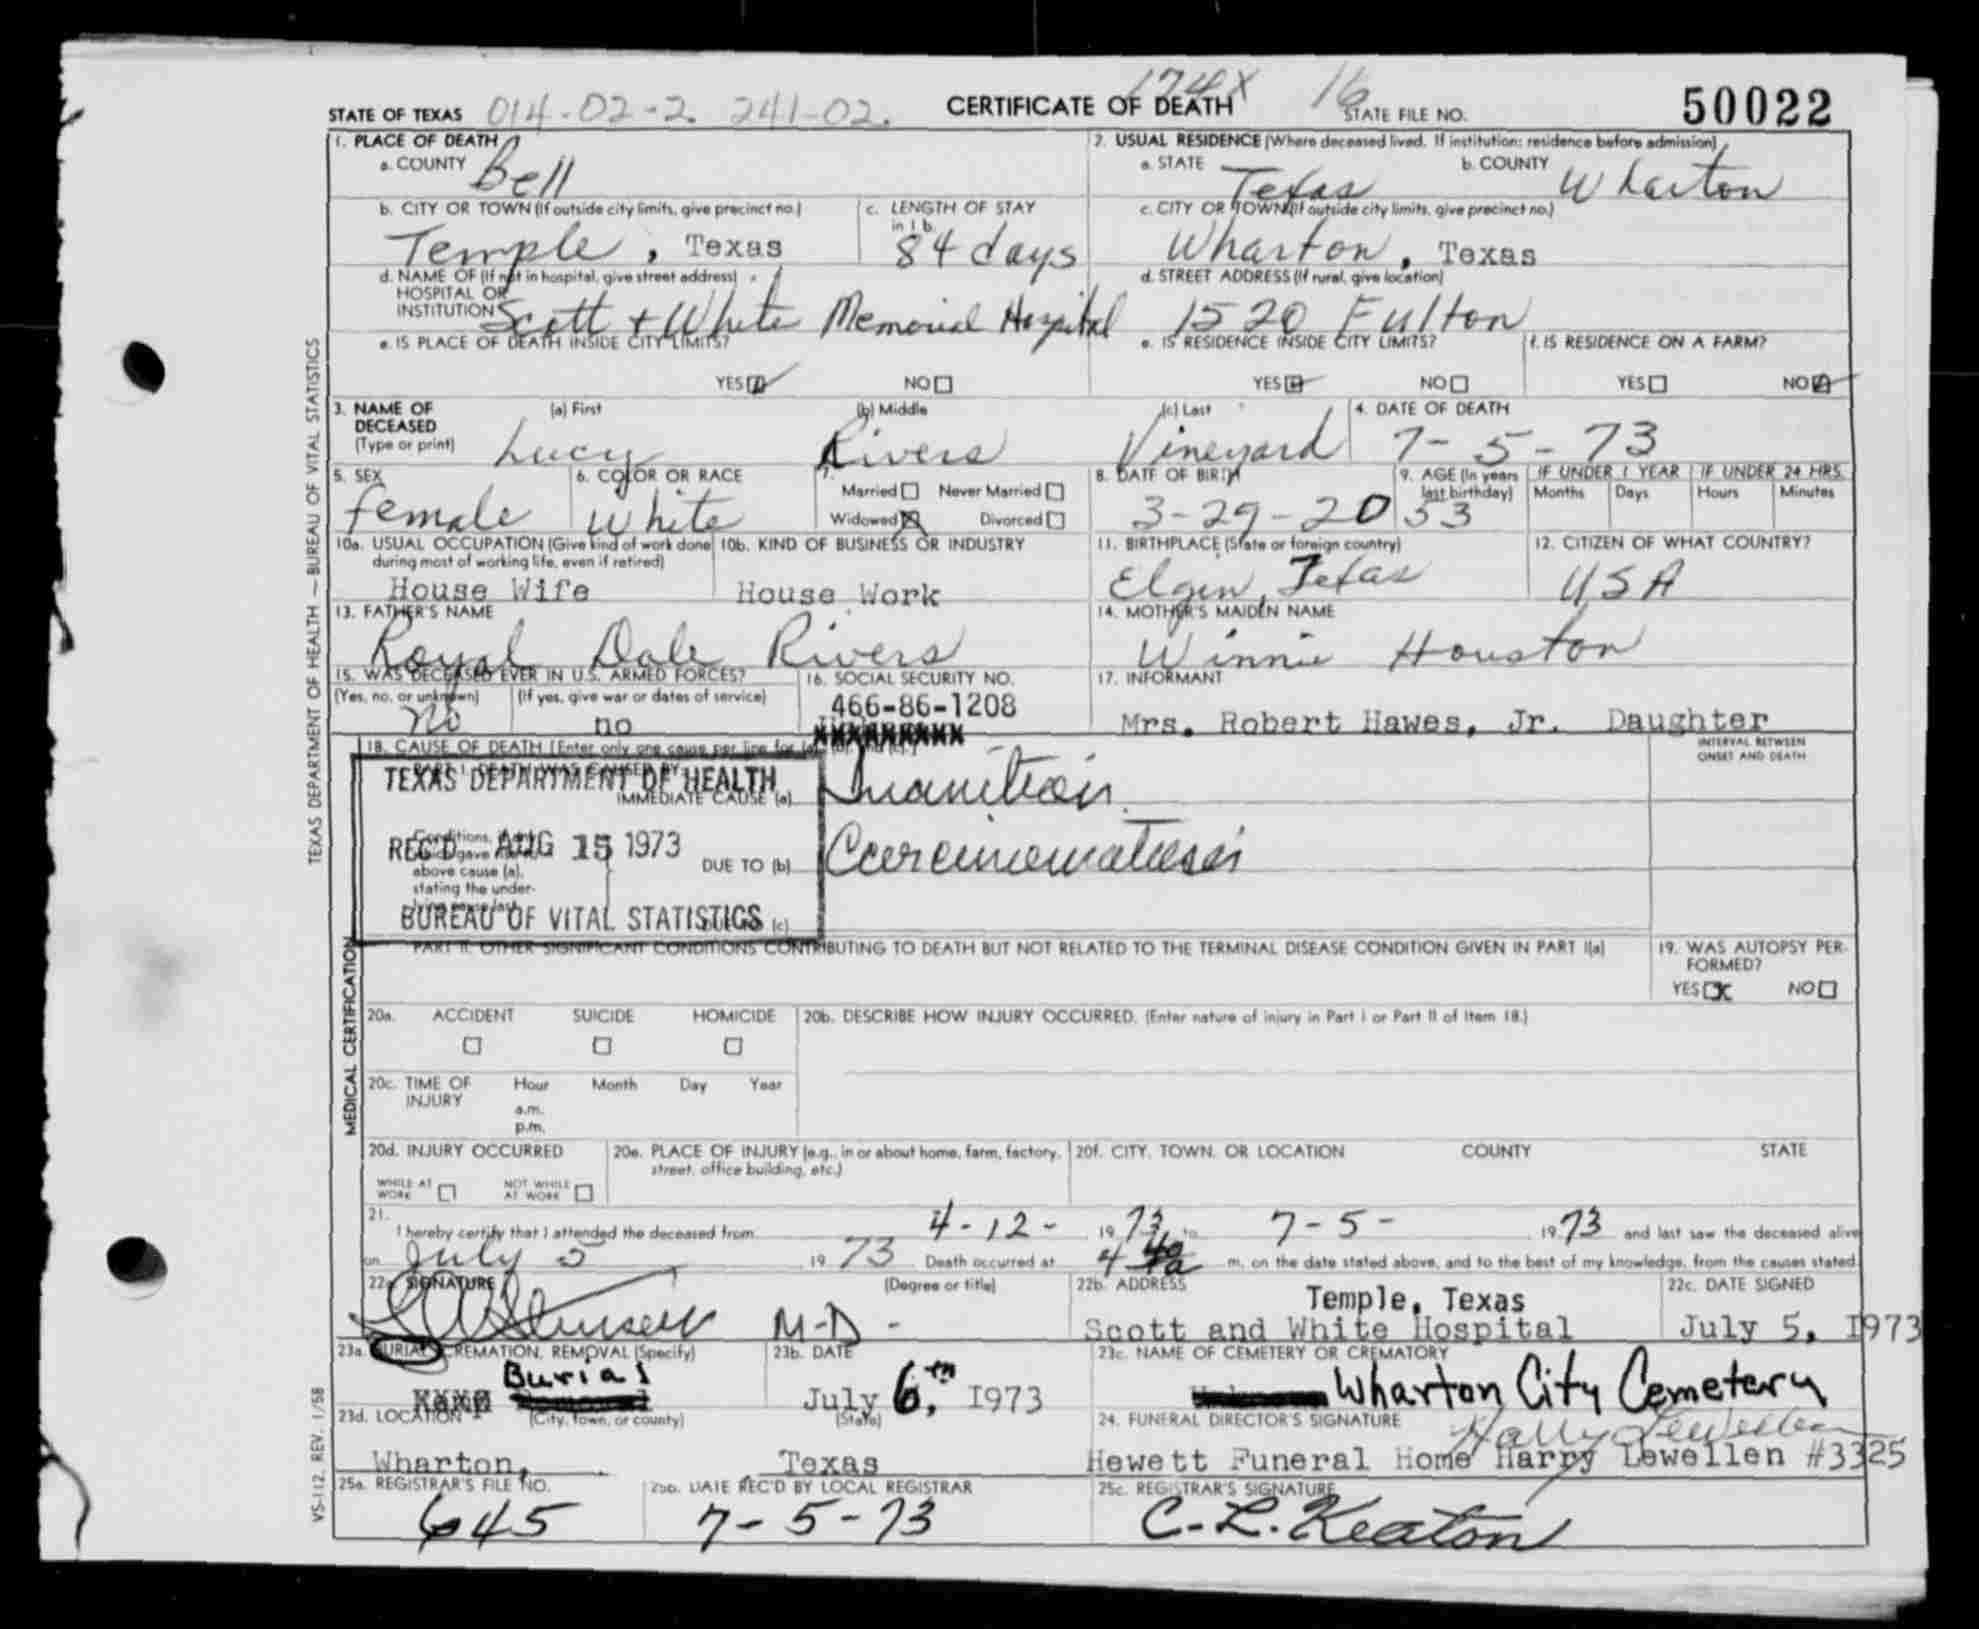 174X 16
STATE OF TEXAS 014-02-2. 241-02. CERTIFICATE OF DEATH STATE FILE NO. 50022
1. PLACE OF DEATH
a. COUNTY Bell
2. USUAL RESIDENCE (Where deceased lived. If institution: residence before admission)
a. STATE Texas b. COUNTY Wharton
b. CITY OR TOWN (If outside city limits, give precinct no.) Temple, Texas
c. LENGTH OF STAY in 1 b. 84 days
c. CITY OR TOWN (If outside city limits, give precinct no.) Wharton, Texas
d. NAME OF (If not in hospital, give street address) HOSPITAL OR INSTITUTION Scott + White Memorial Hospital
d. STREET ADDRESS (If rural, give location) 1520 Fulton
e. IS PLACE OF DEATH INSIDE CITY LIMITS? YES NO
e. IS RESIDENCE INSIDE CITY LIMITS? YES NO
f. IS RESIDENCE ON A FARM? YES NO
3. NAME OF DECEASED (Type or print) (a) First Lucy (b) Middle Rivers (c) Last Vineyard
4. DATE OF DEATH 7-5-73
5. SEX female
6. COLOR OR RACE White
7. Married Never Married Widowed X Divorced
8. DATE OF BIRTH 3-29-20
9. AGE (In years last birthday) 53
IF UNDER 1 YEAR Months Days
IF UNDER 24 HRS. Hours Minutes
10a. USUAL OCCUPATION (Give kind of work done during most of working life, even if retired) House Wife
10b. KIND OF BUSINESS OR INDUSTRY House Work
11. BIRTHPLACE (State or foreign country) Elgin, Texas
12. CITIZEN OF WHAT COUNTRY? USA
13. FATHER'S NAME Royal Dale Rivers
14. MOTHER'S MAIDEN NAME Winnie Houston
15. WAS DECEASED EVER IN U.S. ARMED FORCES?
(Yes, no, or unknown) no (If yes, give war or dates of service) no
16. SOCIAL SECURITY NO. 466-86-1208
17. INFORMANT Mrs. Robert Hawes, Jr. Daughter
18. CAUSE OF DEATH [Enter only one cause per line for (a), (b), and (c).]
INTERVAL BETWEEN ONSET AND DEATH
PART I. DEATH WAS CAUSED BY:
IMMEDIATE CAUSE (a) Inanition
Conditions, if any, which gave rise to above cause (a), stating the underlying cause last.
DUE TO (b) Carcinomatosis
DUE TO (c)
TEXAS DEPARTMENT OF HEALTH
REC'D AUG 15 1973
BUREAU OF VITAL STATISTICS
PART II. OTHER SIGNIFICANT CONDITIONS CONTRIBUTING TO DEATH BUT NOT RELATED TO THE TERMINAL DISEASE CONDITION GIVEN IN PART I(a)
19. WAS AUTOPSY PERFORMED? YES X NO
20a. ACCIDENT SUICIDE HOMICIDE
20b. DESCRIBE HOW INJURY OCCURRED. (Enter nature of injury in Part I or Part II of Item 18.)
20c. TIME OF INJURY Hour Month Day Year
a.m.
p.m.
20d. INJURY OCCURRED WHILE AT WORK NOT WHILE AT WORK
20e. PLACE OF INJURY (e.g., in or about home, farm, factory, street, office building, etc.)
20f. CITY, TOWN, OR LOCATION COUNTY STATE
21. I hereby certify that I attended the deceased from 4-12- 1973, to 7-5- 1973 and last saw the deceased alive
on July 5 1973 Death occurred at 4 m. on the date stated above, and to the best of my knowledge, from the causes stated.
22a. SIGNATURE (Degree or title) M-D-
22b. ADDRESS Temple, Texas
Scott and White Hospital
22c. DATE SIGNED July 5, 1973
23a. BURIAL, CREMATION, REMOVAL (Specify) Burial
23b. DATE July 6, th 1973
23c. NAME OF CEMETERY OR CREMATORY Wharton City Cemetery
23d. LOCATION (City, town, or county) (State)
Wharton, Texas
24. FUNERAL DIRECTOR'S SIGNATURE Harry Lewellen
Hewett Funeral Home Harry Lewellen #3325
25a. REGISTRAR'S FILE NO. 645
25b. DATE REC'D BY LOCAL REGISTRAR 7-5-73
25c. REGISTRAR'S SIGNATURE C.L. Keaton
TEXAS DEPARTMENT OF HEALTH — BUREAU OF VITAL STATISTICS
MEDICAL CERTIFICATION
VS-112, REV. 1/58